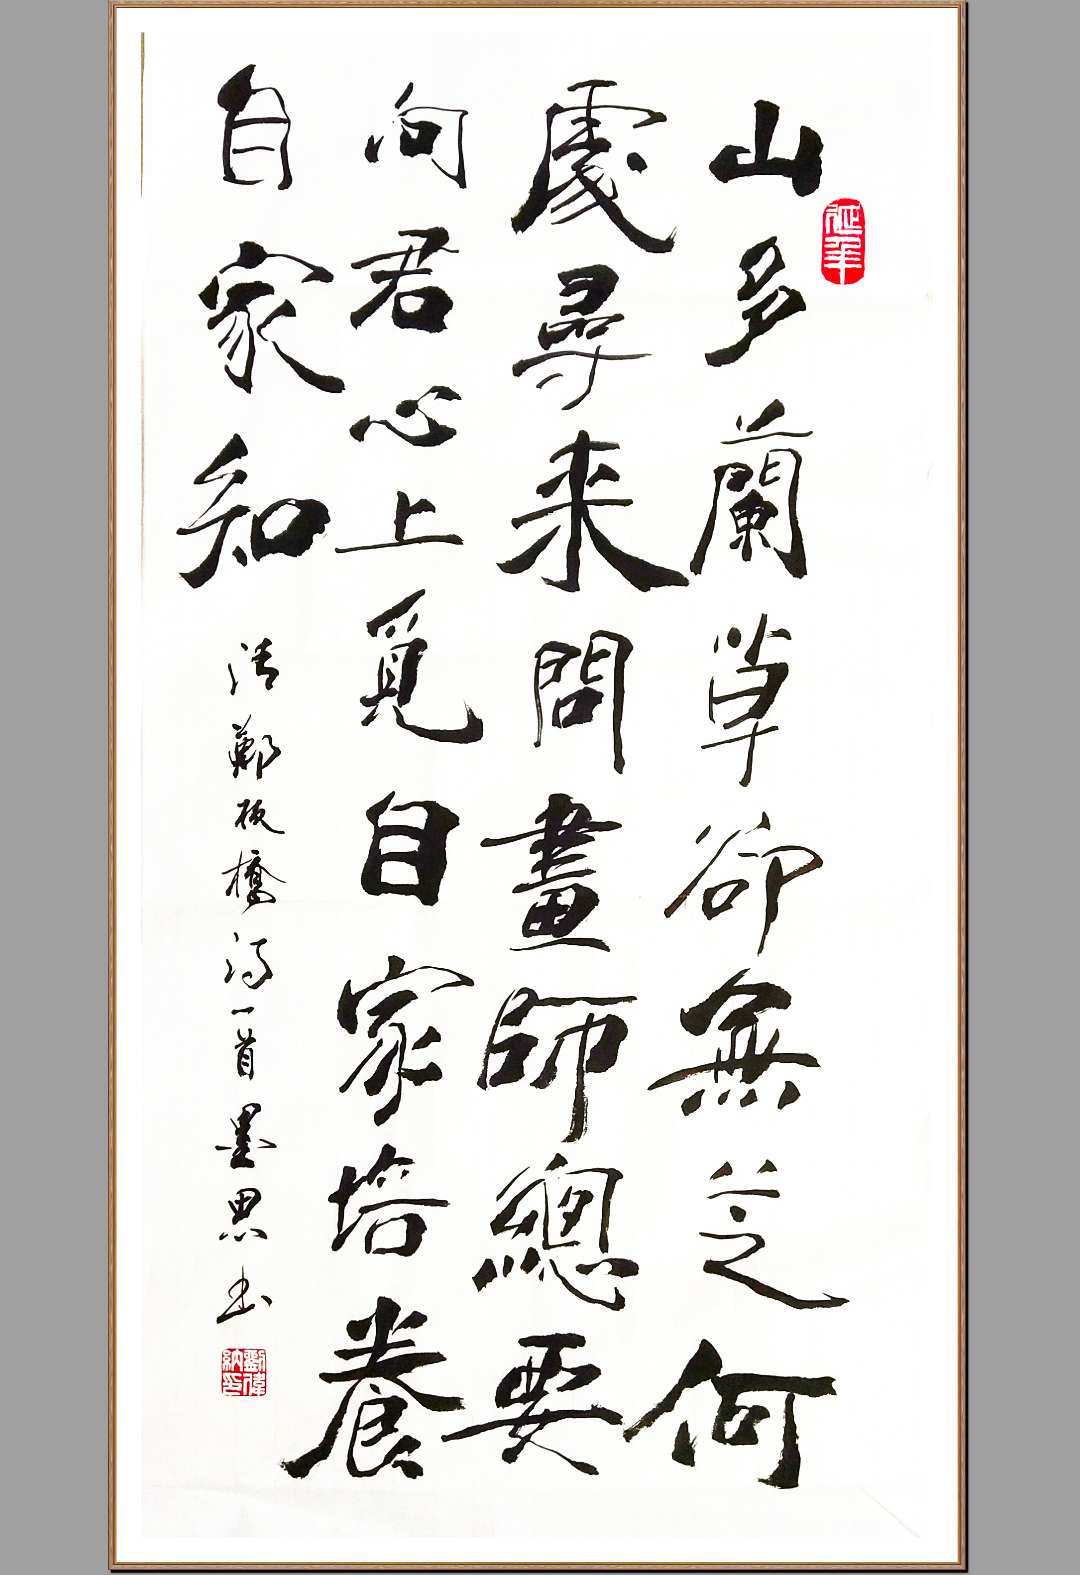 山多蘭草卻無芝何
處尋來問畫師總要
向君心上覓自家培養
自家知
清鄭板橋詩一首墨思书
延年